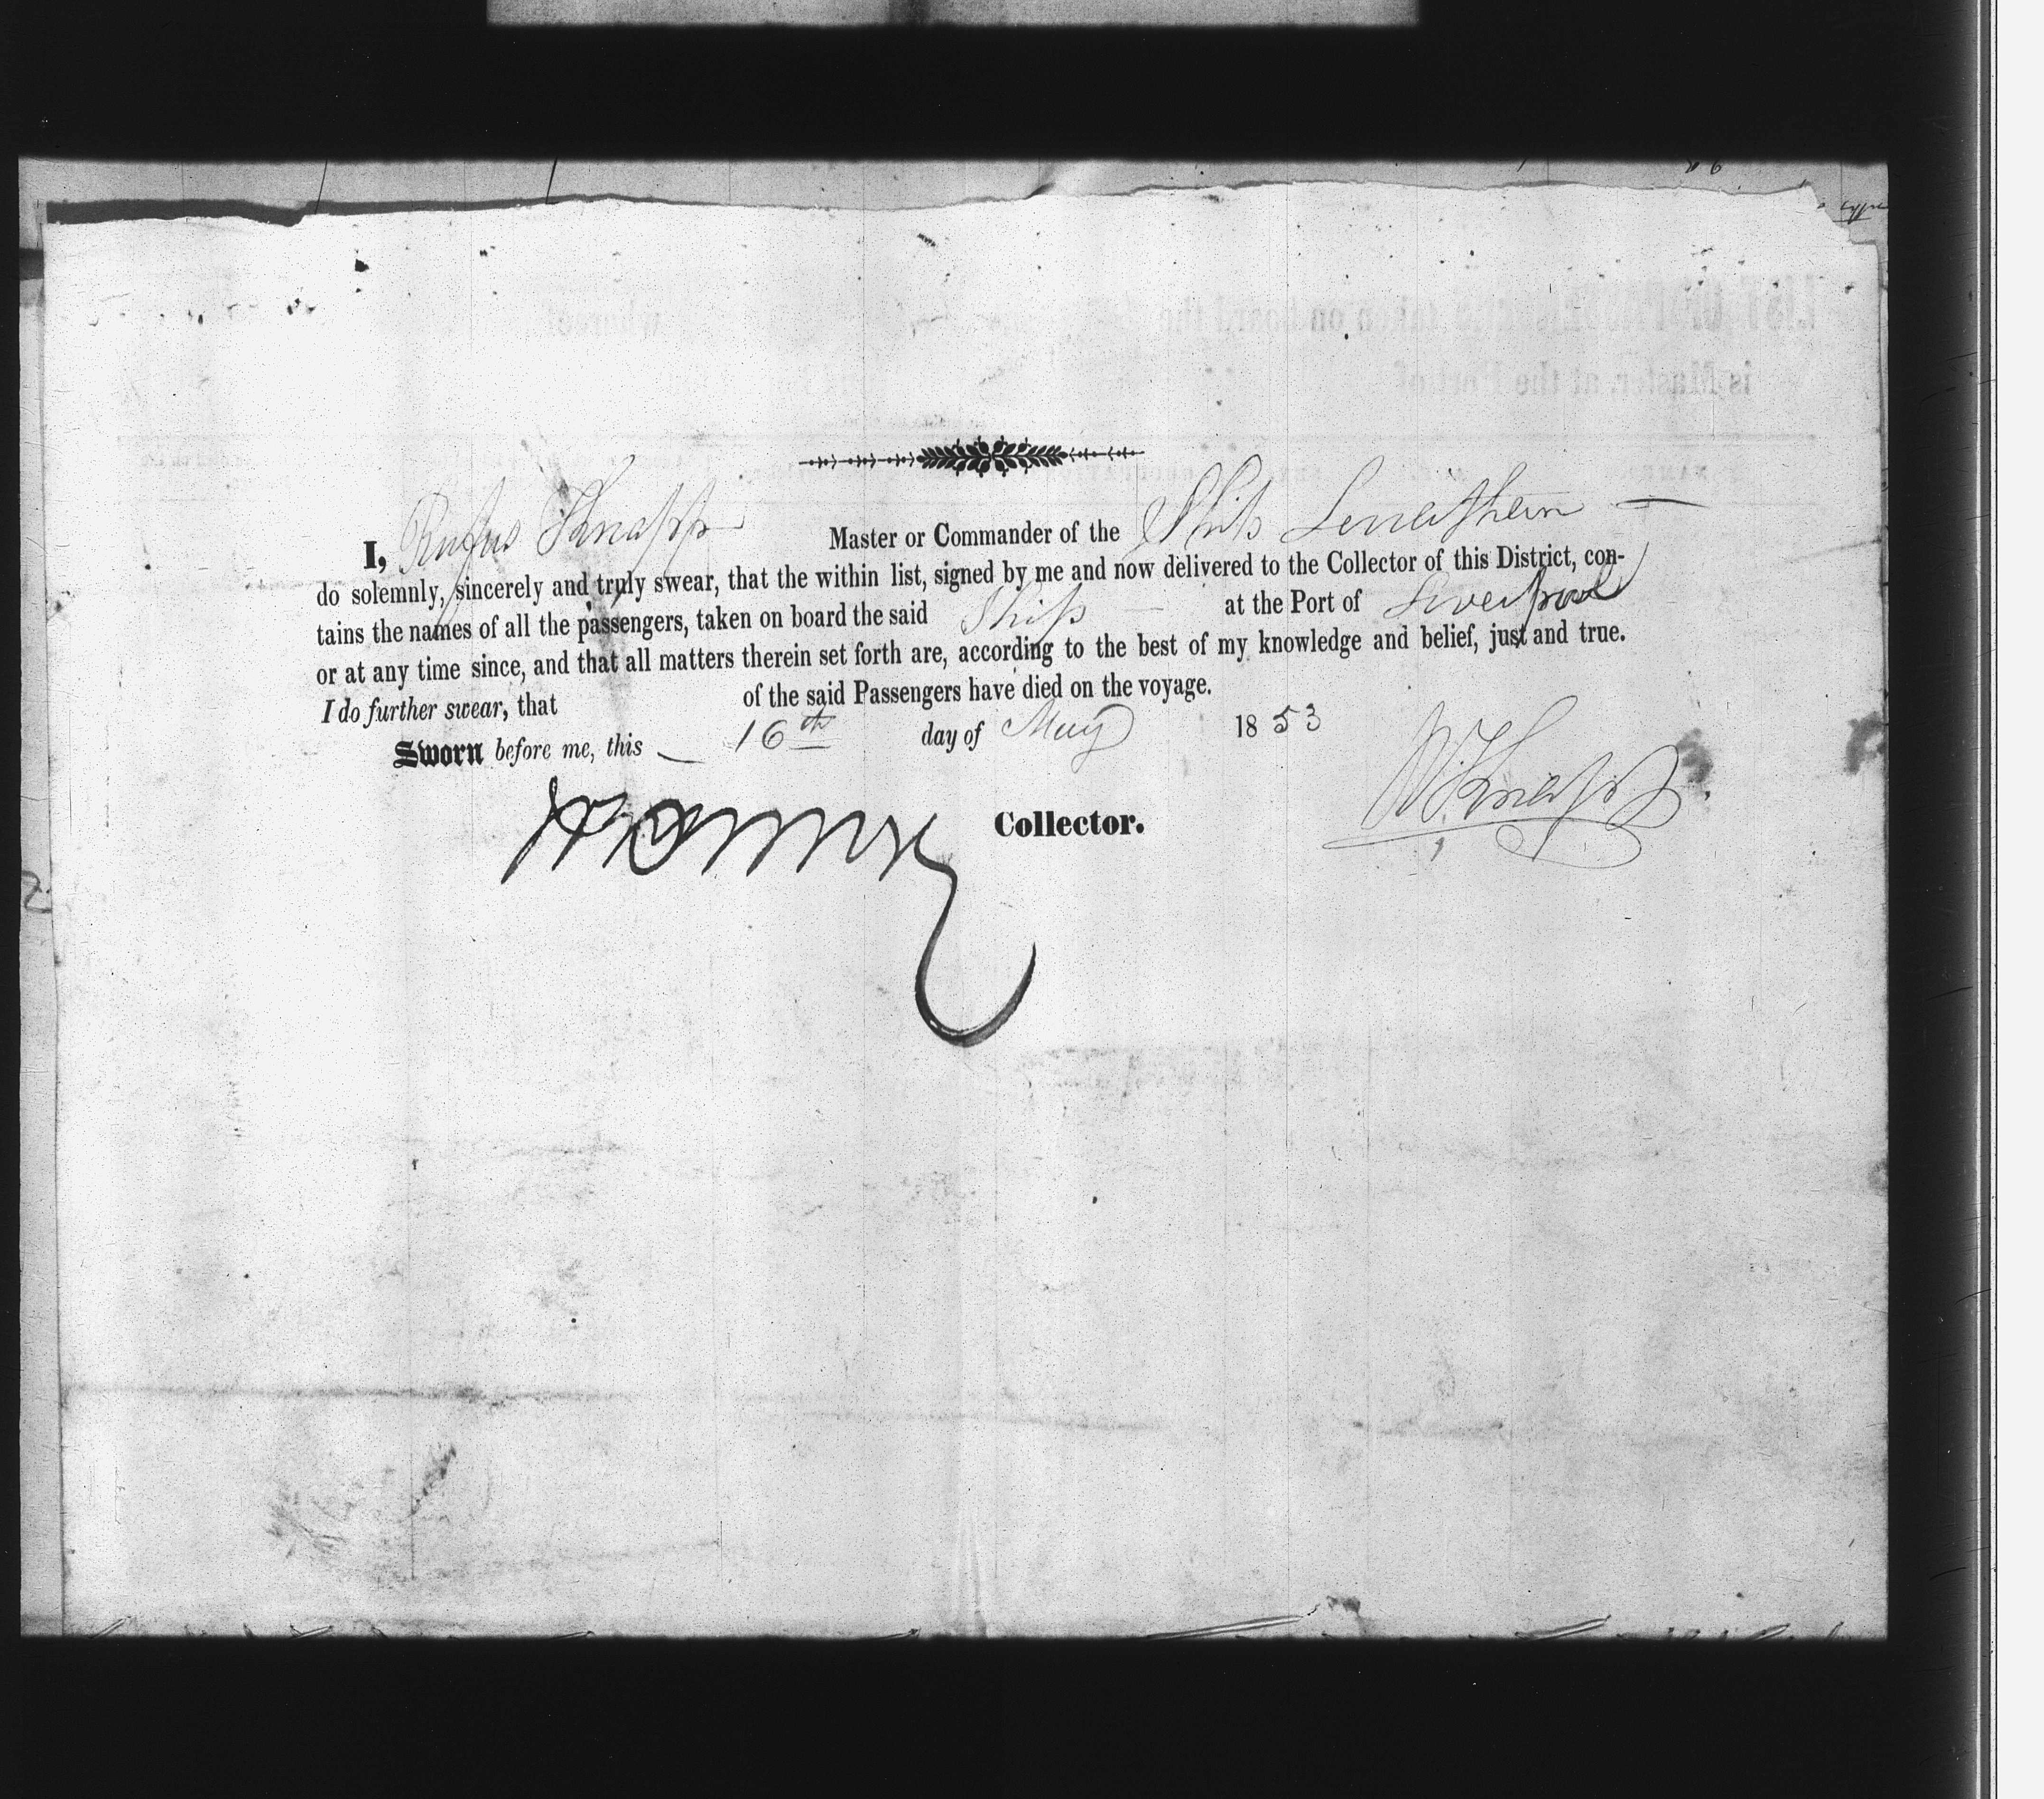 I, Rufus Knapp Master or Commander of the Ship Leveathern
do solemnly, sincerely and truly swear, that the within list, signed by me and now delivered to the Collector of this District, con-
tains the names of all the passengers, taken on board the said Ship at the Port of Liverpool
or at any time since, and that all matters therein set forth are, according to the best of my knowledge and belief, just and true.
I do further swear, that of the said Passengers have died on the voyage.
Sworn before me, this 16th day of May 1853
Knapp
Collector.